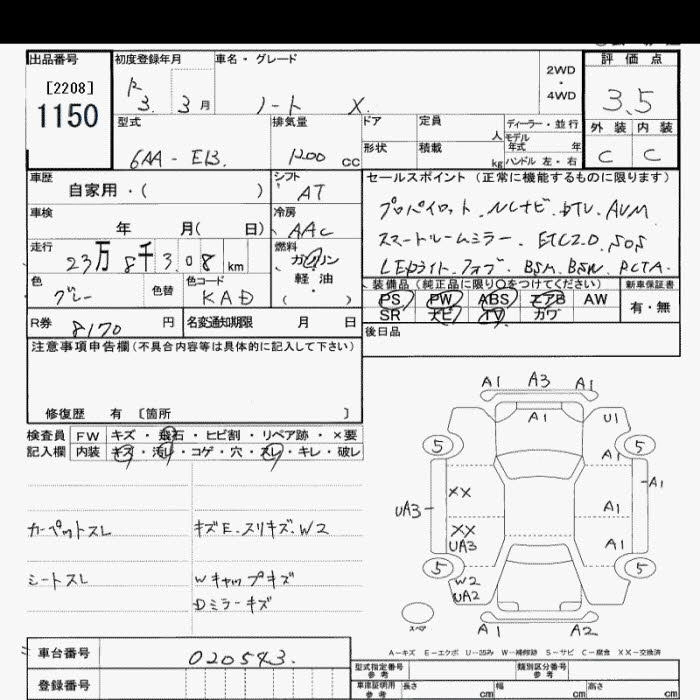 出品番号 初度登録年月 車名・グレード 2WD・4WD 評価点
[2208]
1150
R 3. 3月 ノート X. 3.5
型式 排気量 ドア 定員 人 ディーラー・並行 外装 内装
6AA - E13. 1200 cc 形状 積載 kg モデル年式 年 ハンドル 左・右 C C
車歴 自家用・( ) シフト AT セールスポイント (正常に機能するものに限ります)
車検 年 月( 日) 冷房 AAC プロパイロット. NCナビ. DTV. AVM
走行 23万 8千 3.08 km 燃料 ガソリン 軽・油 ( ) スマートルームミラー. ETC2.0. SOS
色 グレー 色替 色コード KAD LEDライト. フォブ. BSM. BSW. RCTA.
装備品 (純正品に限り○をつけてください) 新車保証書
PS PW ABS エアB AW 有・無
SR ナビ TV カワ
R券 8170 円 名変通知期限 月 日 後日品
注意事項申告欄(不具合内容等は具体的に記入して下さい)
修復歴 有 〔箇所 〕
検査員 FW キズ・飛石・ヒビ割・リペア跡・×要
記入欄 内装 キズ・汚レ・コゲ・穴・スレ・キレ・破レ
カーペットスレ キズE. スリキズ. W2
シートスレ Wキャップキズ
Dミラーキズ
A1 A3 A1
A1 U1
5 5
A1
XX A1
UA3 A1
XX
UA3 A1
5 5
W2
UA2
スペア A1 A2
A-キズ E-エクボ U-凹み W-補修跡 S-サビ C-腐食 XX-交換済
車台番号 020543.
登録番号
型式指定番号 参考 類別区分番号 参考
車庫証明用 参考 長さ cm 幅 cm 高さ cm